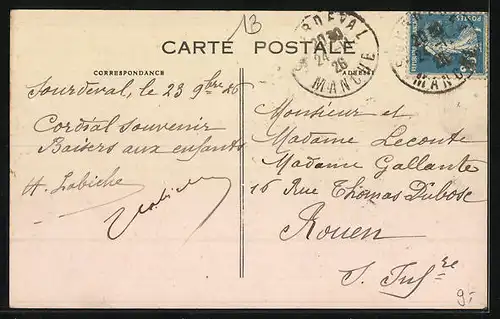 13
CARTE POSTALE
CORRESPONDANCE
ADRESSE
SOURDEVAL
20 30
24
26
MANCHE
MANCHE
Sourdeval, le 23 9bre 26
Cordial souvenir
Baisers aux enfants
H. Labiche
Labiche
Monsieur et
Madame Leconte
Madame Gallante
16 Rue Thomas Dubosc
Rouen
S. Infre
9.-